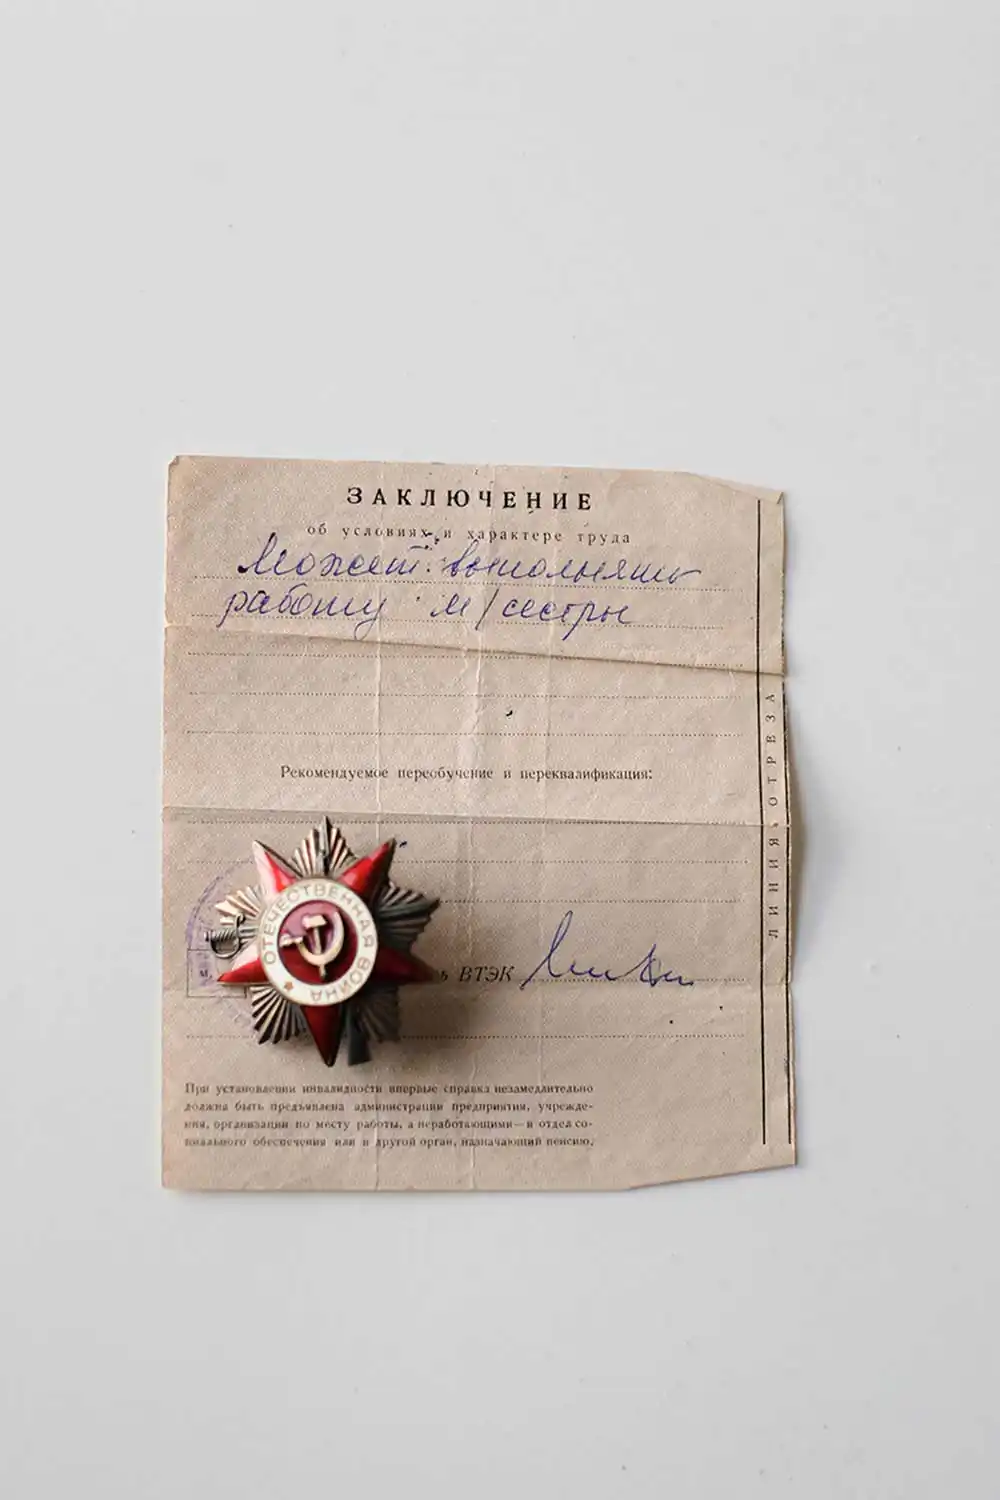 ЗАКЛЮЧЕНИЕ
об условиях и характере труда
Может выполнять
работу м/сестры
Рекомендуемое переобучение и переквалификация:
ЛИНИЯ ОТРЕЗА
ОТЕЧЕСТВЕННАЯ ВОЙНА
м.
ь ВТЭК
При установлении инвалидности впервые справка незамедлительно
должна быть предъявлена администрации предприятия, учрежде-
ния, организации по месту работы, а неработающими — в отдел со-
циального обеспечения или в другой орган, назначающий пенсию.